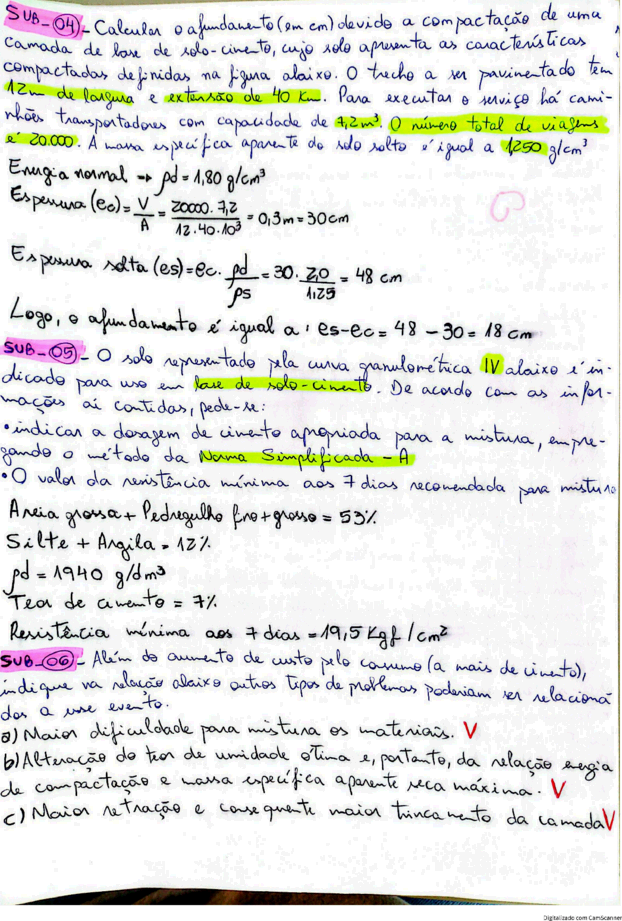 SUB-04 - Calcular o afundamento (em cm) devido a compactação de uma
camada de base de solo-cimento, cujo solo apresenta as características
compactadas definidas na figura abaixo. O trecho a ser pavimentado tem
12m de largura e extensão de 40 Km. Para executar o serviço há cami-
nhões transportadores com capacidade de 7,2m³. O número total de viagens
é 20.000. A massa específica aparente do solo solto é igual a 1,250 g/cm³
Energia normal → ρd = 1,80 g/cm³
Espessura (ec) = V/A = 20000.7,2 / 12.40.10³ = 0,3m = 30cm
Espessura solta (es) = ec. ρd/ρs = 30. 2,0/1,25 = 48 cm
Logo, o afundamento é igual a: es-ec = 48 - 30 = 18 cm
SUB-05 - O solo representado pela curva granulométrica IV abaixo é in-
dicado para uso em base de solo-cimento. De acordo com as infor-
mações aí contidas, pede-se:
• indicar a dosagem de cimento apropriada para a mistura, empre-
gando o método da Norma Simplificada - A
• O valor da resistência mínima aos 7 dias recomendada para mistura
Areia grossa + Pedregulho fino + grosso = 53%
Silte + Argila = 12%
ρd = 1940 g/dm³
Teor de cimento = 7%
Resistência mínima aos 7 dias = 19,5 Kgf/cm²
SUB-06 - Além do aumento de custo pelo consumo (a mais de cimento),
indique na relação abaixo outros tipos de problemas poderiam ser relaciona
dos a esse evento.
a) Maior dificuldade para mistura os materiais. V
b) Alteração do teor de umidade ótima e, portanto, da relação energia
de compactação e massa específica aparente seca máxima. V
c) Maior retração e consequente maior trincamento da camada V
Digitalizado com CamScanner